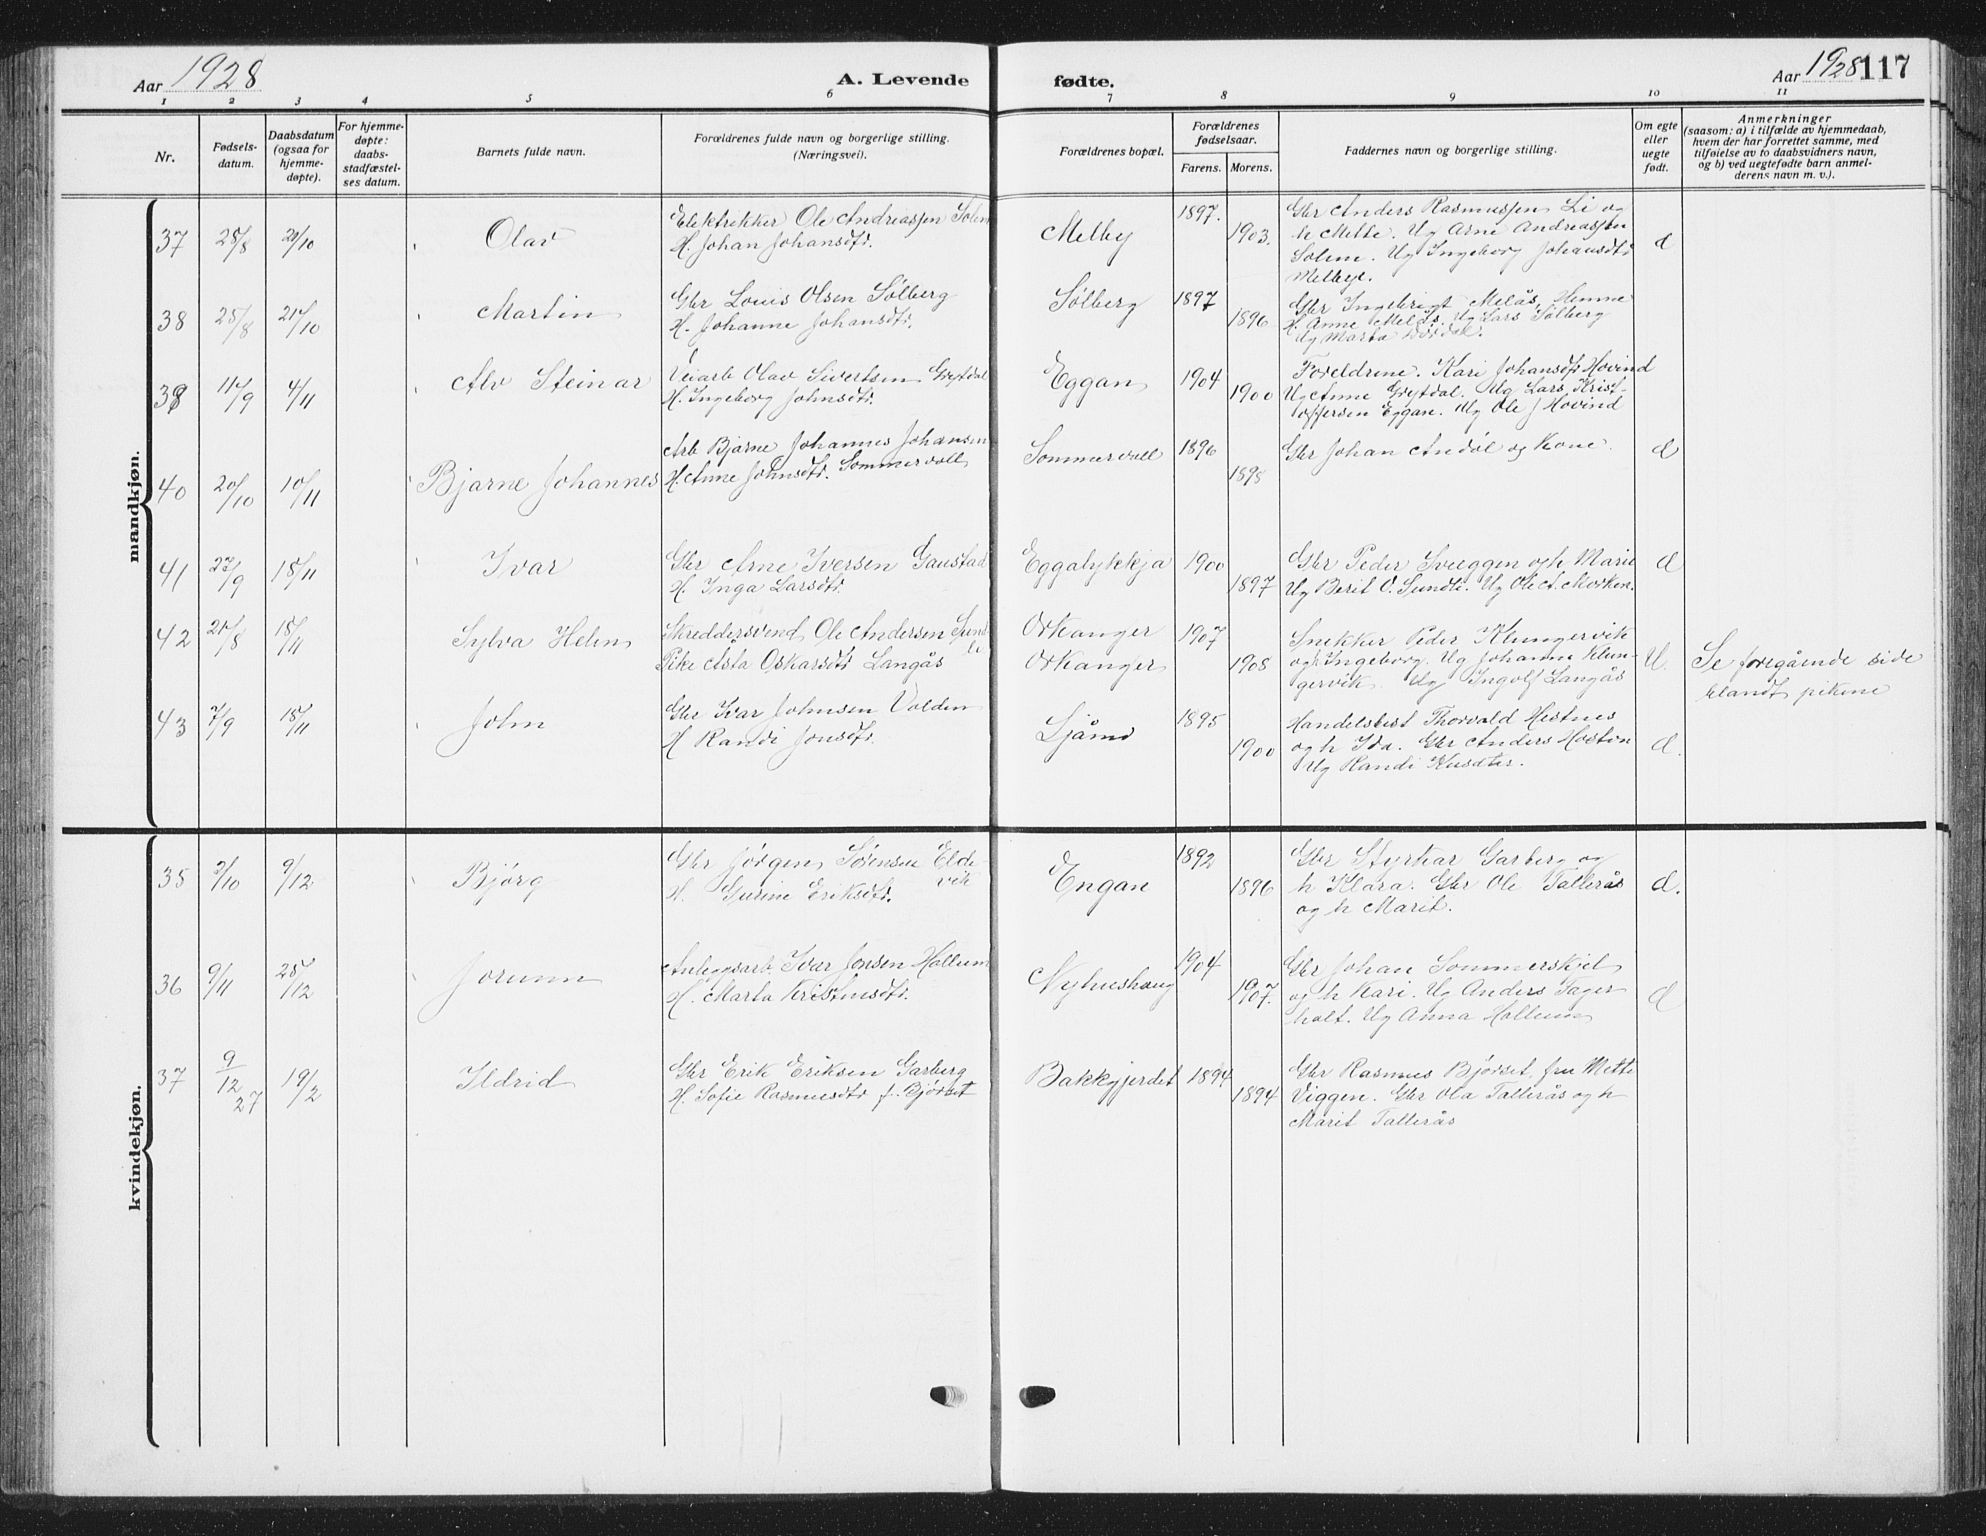 Aar 1928
A. Levende fødte.
Aar 1928 117
1 2 3 4 5 6 7 8 9 10 11
Nr.
Fødsels-
datum.
Daabsdatum
(ogsaa for
hjemme-
døpte).
For hjemme-
døpte:
daabs-
stadfæstel-
ses datum.
Barnets fulde navn.
Forældrenes fulde navn og borgerlige stilling.
(Næringsvei).
Forældrenes bopæl.
Forældrenes
fødselsaar.
Farens. Morens.
Faddernes navn og borgerlige stilling.
Om egte
eller
uegte
født.
Anmerkninger
(saasom: a) i tilfælde av hjemmedaab,
hvem der har forrettet samme, med
tilføielse av to daabsvidners navn,
og b) ved uegtefødte barn anmel-
derens navn m. v.).
mandkjøn.
37 25/8 20/10 Olav
Elektrikker Ole Andreassen Solem
H. Johan Johansdtr.
Melby 1897. 1903.
Gbr Anders Rasmussen Li og
h Mette. Ug Arne Andreassen
Solem. Ug Ingeborg Johansdtr
Melbye.
d
38 25/8 21/10 Martin
Gbr Louis Olsen Sølberg
H. Johanne Johansdtr.
Sølberg 1897 1896
Gbr Ingebrigt Melås, Hemne
H. Anne Melås. Ug Lars Sølberg
Ug Marta
39 11/9 4/11 Alv Steinar
Veiarb Olav Sivertsen Grytdal
H. Ingeborg Johnsdtr.
Eggan 1904 1900
Foreldrene. Kari Johansdtr Hovind
Ug Anne Grytdal. Ug Lars Krist-
offersen Eggan. Ug Ole J Hovind
d
40 20/10 10/11 Bjarne Johannes
Arb Bjarne Johannes Johansen
H. Anne Johnsdtr. Sommervoll
Sommervoll 1896 1898
Gbr Johan Andøl og Kone.
d
41 27/9 18/11 Ivar
Gbr Arne Iversen Gaustad
H. Inga Larsdtr.
Eggalykkja 1900 1897
Gbr Peder Sveeggen og h Marie
Ug Berit O. Sundli. Ug Ole A. Morken.
d
42 21/8 18/11 Sylva Helen
Skreddersvend Ole Andersen Sund-
li
Pike Asta Oskarsdtr Langås
Orkanger
Orkanger
1907 1908
Snekker Peder Klungervik
og h Ingeborg. Ug Johanna Klun-
gervik. Ug Ingolf Langås
U.
Se foregående side
blandt pikene
43 7/9 18/11 John
Gbr Ivar Johnsen Volden
H Randi Jonsdtr.
Ljåmo 1895 1900
Handelsbest Thorvald Hestnes
og h Ida. Gbr Anders Hoston
Ug Randi
d.
kvindekjøn.
35 3/10 9/12 Bjørg
Gbr Jørgen Sørensen Elde-
vik
H. Gurine Eriksdtr.
Engan 1892 1896
Gbr Styrkar Garberg og
h Klara. Gbr Ole Tallerås
og h Marit.
d.
36 9/11 25/12 Jorunn
Anleggsarb. Ivar Jonsen Hollum
H. Marta Kristensdtr.
Nyhushaug 1904 1907.
Gbr Johan Sommerskjel
og h Kari. Ug Anders Fager
holt. Ug Anna Hollum
d
37 9/12 27 19/2 Ildrid
Gbr Erik Eriksen Garberg
H. Sofie Rasmusdtr f. Bjørset
Bakkgjerdet 1894 1894
Gbr Rasmus Bjørset, fru Mette
Viggen. Gbr Ola Tallerås og h
Marit Tallerås